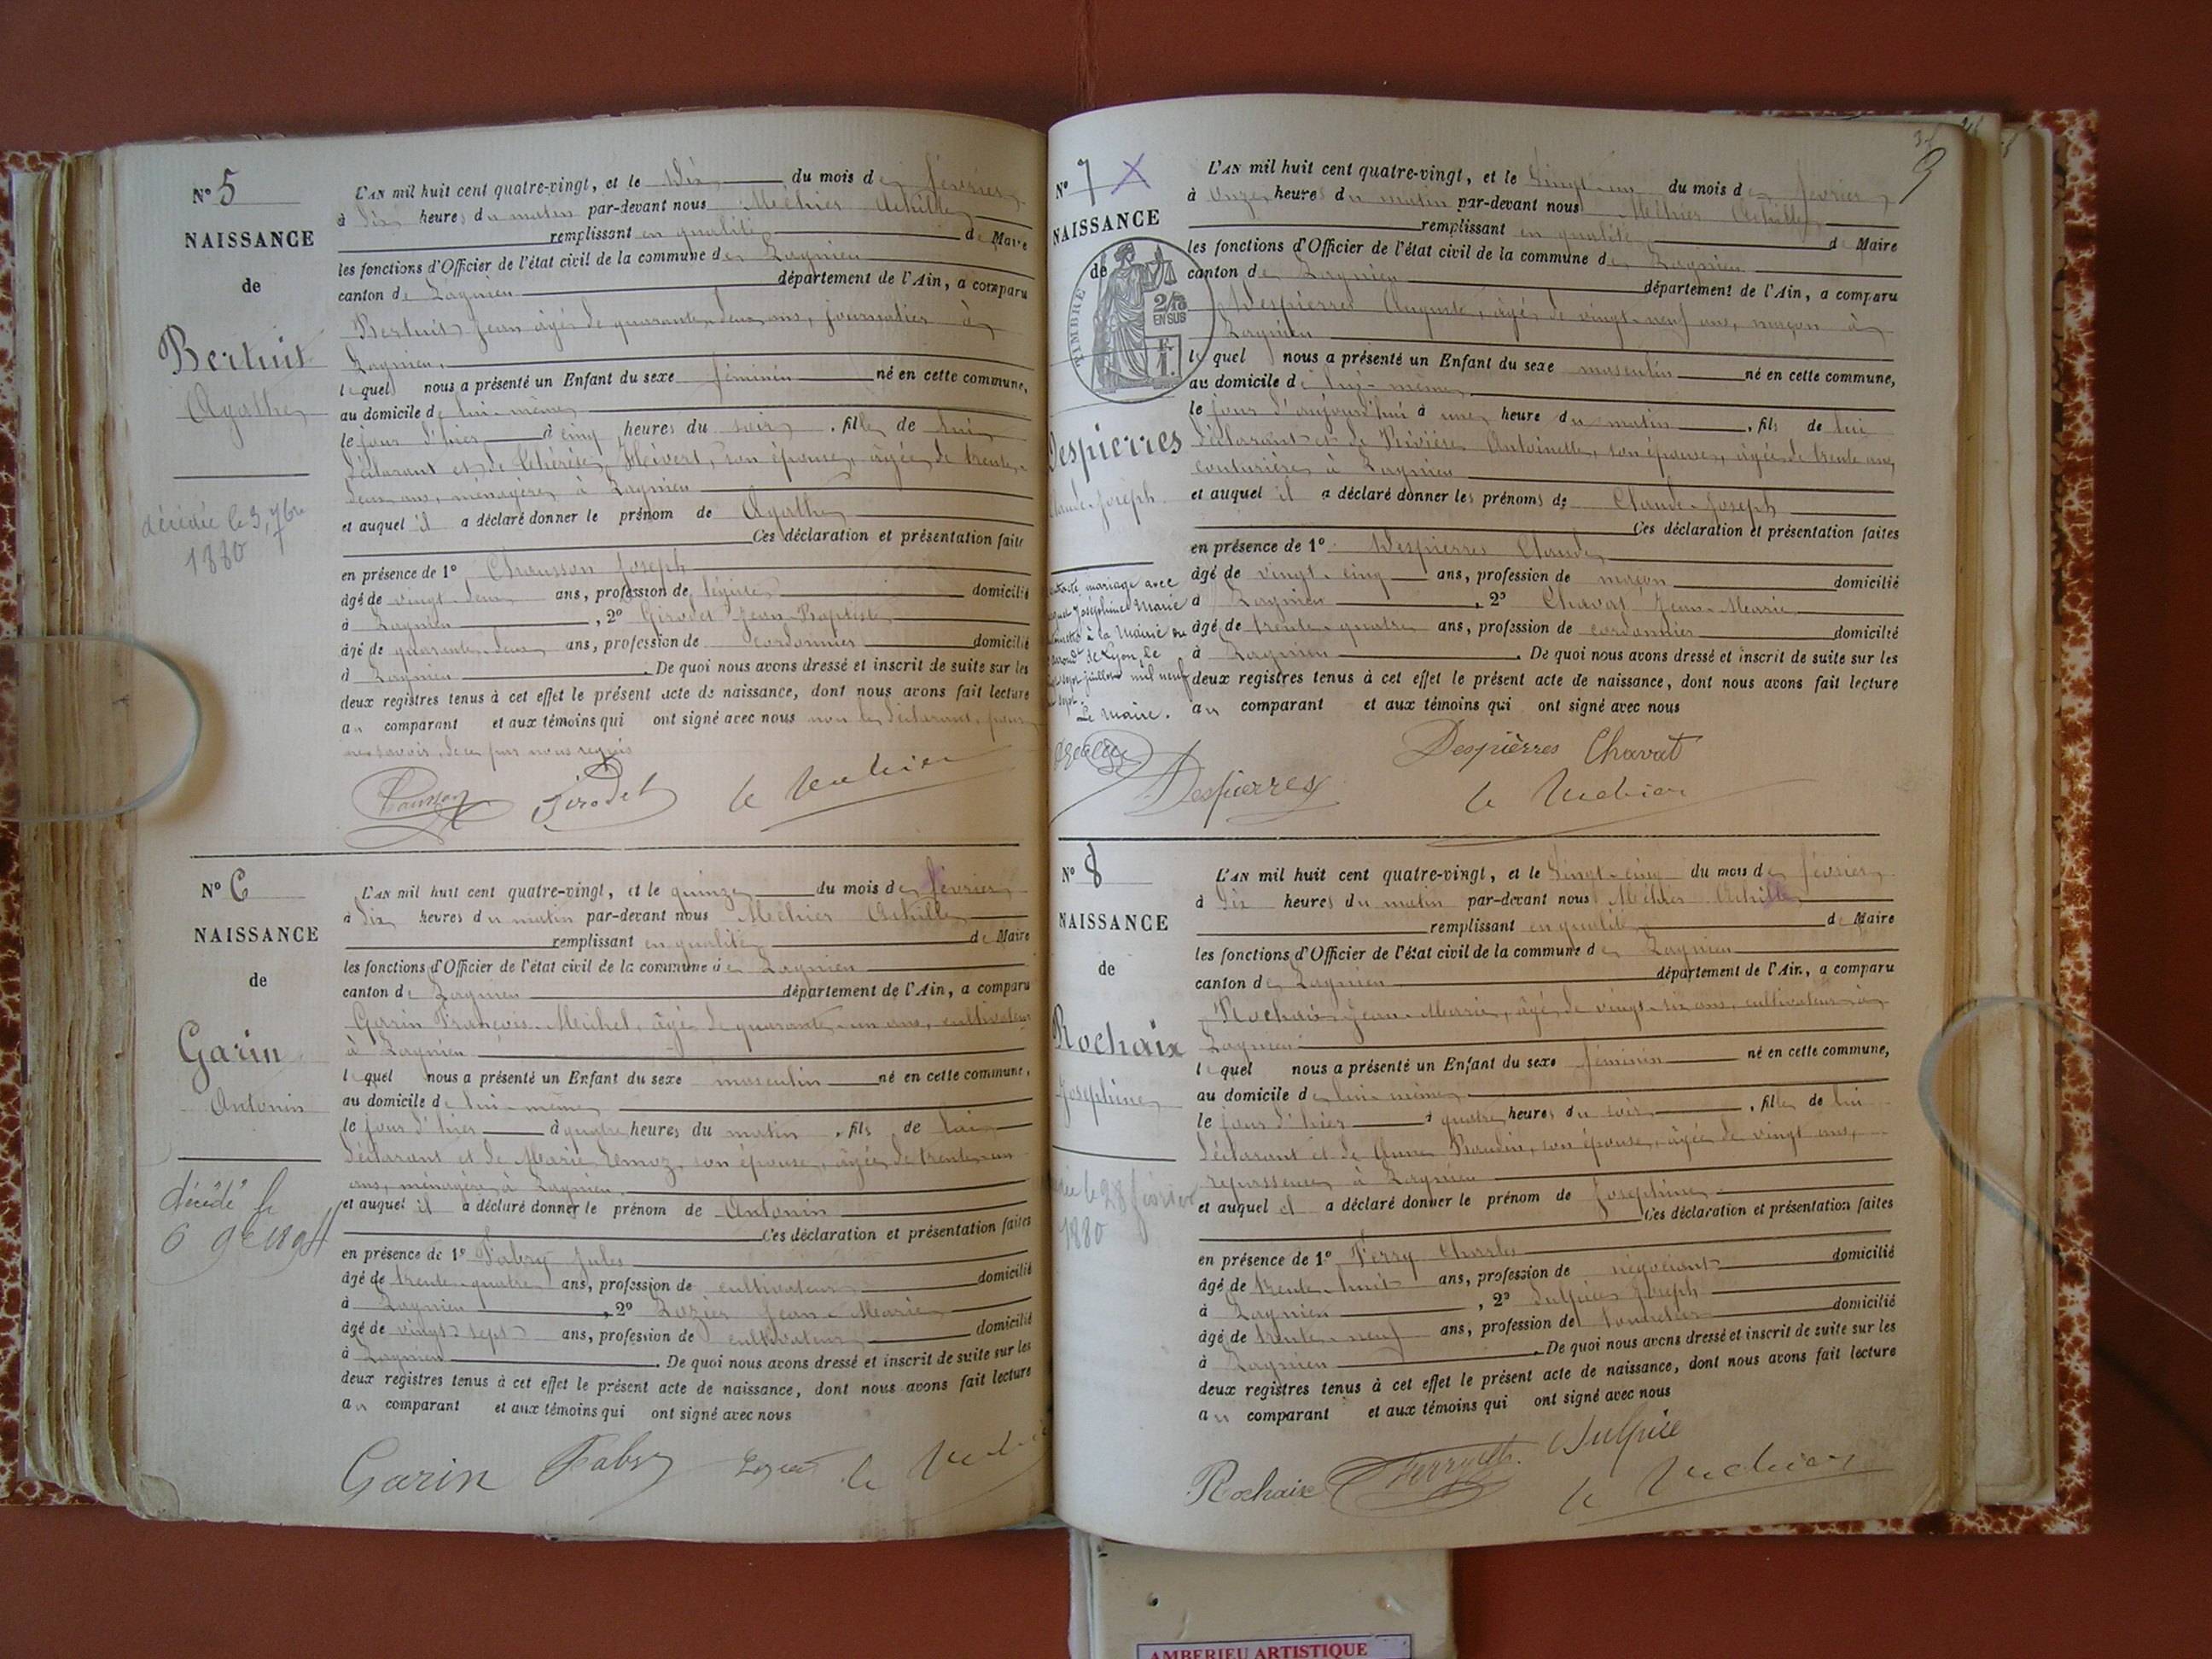 N° 5
NAISSANCE
de
Bertuit
Agathe
décédée le 3 7bre
1880
L'AN mil huit cent quatre-vingt, et le dix du mois de février
à dix heures du matin par-devant nous Méhier Achille
remplissant en qualité de Maire
les fonctions d'Officier de l'état civil de la commune de Lagnieu
canton de Lagnieu département de l'Ain, a comparu
Bertuit Jean âgé de quarante-deux ans, journalier à
Lagnieu,
lequel nous a présenté un Enfant du sexe féminin né en cette commune,
au domicile de lui-même
le jour d'hier à cinq heures du soir, fille de lui
déclarant et de Thérèse, son épouse, âgée de trente-
deux ans, ménagère à Lagnieu
et auquel il a déclaré donner le prénom de Agathe
Ces déclaration et présentation faites
en présence de 1° Chausson Joseph
âgé de vingt-deux ans, profession de domicilié
à Lagnieu, 2° Girodet Jean-Baptiste
âgé de quarante-deux ans, profession de cordonnier domicilié
à Lagnieu. De quoi nous avons dressé et inscrit de suite sur les
deux registres tenus à cet effet le présent acte de naissance, dont nous avons fait lecture
au comparant et aux témoins qui ont signé avec nous non le déclarant, pour
ne savoir de ce par nous requis
Chausson Girodet le Mehier
N° 6
NAISSANCE
de
Garin
Antonin
décédé le
L'AN mil huit cent quatre-vingt, et le quinze du mois de février
à dix heures du matin par-devant nous Méhier Achille
remplissant en qualité de Maire
les fonctions d'Officier de l'état civil de la commune de Lagnieu
canton de Lagnieu département de l'Ain, a comparu
Garin François-Michel, âgé de quarante-un ans, cultivateur
à Lagnieu
lequel nous a présenté un Enfant du sexe masculin né en cette commune,
au domicile de lui-même
le jour d'hier à quatre heures du matin, fils de lui
déclarant et de Marie, son épouse, âgée de trente-un
ans, ménagère à Lagnieu.
et auquel il a déclaré donner le prénom de Antonin
Ces déclaration et présentation faites
en présence de 1° Fabry Jules
âgé de trente-quatre ans, profession de cultivateur domicilié
à Lagnieu, 2° Lozier Jean-Marie
âgé de vingt-sept ans, profession de cultivateur domicilié
à Lagnieu. De quoi nous avons dressé et inscrit de suite sur les
deux registres tenus à cet effet le présent acte de naissance, dont nous avons fait lecture
au comparant et aux témoins qui ont signé avec nous
Garin Fabry Lozier le
9
N° 7 X
NAISSANCE
de
TIMBRE
2/10
EN SUS
Despierres
Claude-Joseph
mariage avec
Joséphine Marie
à la Mairie du
de Lyon, le
sept juillet mil neuf
sept.
Le Maire.
L'AN mil huit cent quatre-vingt, et le vingt-un du mois de février
à onze heures du matin par-devant nous Méhier Achille
remplissant en qualité de Maire
les fonctions d'Officier de l'état civil de la commune de Lagnieu
canton de Lagnieu département de l'Ain, a comparu
Despierres Auguste, âgé de vingt-neuf ans, maçon à
Lagnieu
lequel nous a présenté un Enfant du sexe masculin né en cette commune,
au domicile de lui-même
le jour d'aujourd'hui à une heure du matin, fils de lui
déclarant et de Rivière Antoinette, son épouse, âgée de trente ans,
couturière à Lagnieu
et auquel il a déclaré donner les prénoms de Claude-Joseph
Ces déclaration et présentation faites
en présence de 1° Despierres Claude
âgé de vingt-cinq ans, profession de maçon domicilié
à Lagnieu, 2° Chavat Jean-Marie
âgé de trente-quatre ans, profession de cordonnier domicilié
à Lagnieu. De quoi nous avons dressé et inscrit de suite sur les
deux registres tenus à cet effet le présent acte de naissance, dont nous avons fait lecture
au comparant et aux témoins qui ont signé avec nous
Despierres Chavat
Despierres le Mehier
N° 8
NAISSANCE
de
Rochaix
Joséphine
le 28 février
1880
L'AN mil huit cent quatre-vingt, et le vingt-cinq du mois de février
à dix heures du matin par-devant nous Méhier Achille
remplissant en qualité de Maire
les fonctions d'Officier de l'état civil de la commune de Lagnieu
canton de Lagnieu département de l'Ain, a comparu
Rochaix Jean-Marie, âgé de vingt-six ans, cultivateur à
Lagnieu
lequel nous a présenté un Enfant du sexe féminin né en cette commune,
au domicile de lui-même
le jour d'hier à quatre heures du soir, fille de lui
déclarant et de Anne, son épouse, âgée de vingt ans,
repasseuse à Lagnieu
et auquel il a déclaré donner le prénom de Joséphine
Ces déclaration et présentation faites
en présence de 1° Ferry Charles
âgé de trente-huit ans, profession de négociant domicilié
à Lagnieu, 2° Sulpice Joseph
âgé de trente-neuf ans, profession de tonnelier domicilié
à Lagnieu. De quoi nous avons dressé et inscrit de suite sur les
deux registres tenus à cet effet le présent acte de naissance, dont nous avons fait lecture
au comparant et aux témoins qui ont signé avec nous
Rochaix Ferry Sulpice
le Mehier
AMBERIEU ARTISTIQUE